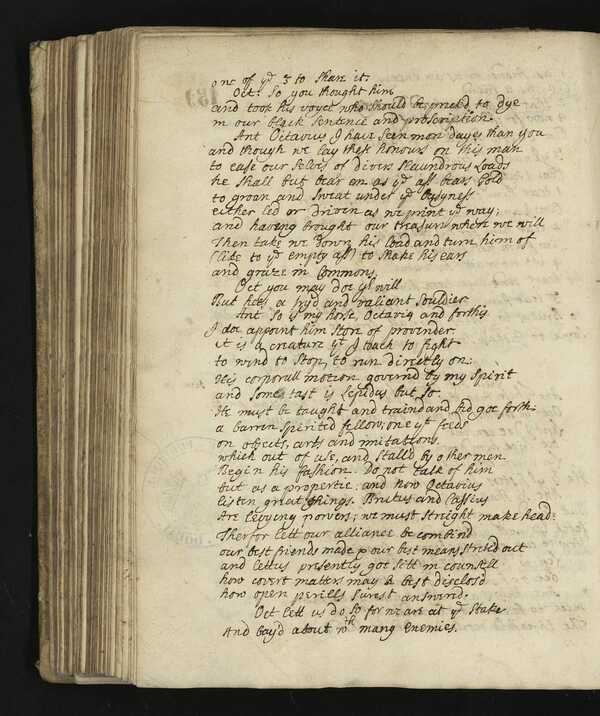 one of yᵉ 3 to share it.
Oct. So you thought him
and took his voyce who should be prickd to dye
in our black sentence and proscription.
Ant Octavius I have seen more dayes than you
and though we lay these honours on this man
to ease our selves of divers slaundrous Loads
he shall but bear em as yᵉ ass bears Gold
to groan and sweat under yᵉ busyness
either led or driven as we print yᵉ way;
and having brought our treasure where we will
Then take we down his load and turn him of
(like to yᵉ empty ass) to shake his ears
and graze in Commons.
Oct you may doe yʳ will
But hees a tryd and valiant souldier
Ant So is my horse, Octavia and for this
I doe appoint him store of provinder
it is a creature yᵗ I teach to fight
to wind to stop, to run directly on:
His corporall motion governd by my spirit
and some tast is Lepidus but so
He must be taught and traind and bid goe forth.
a barrin spirited fellow, one yᵗ feeds
on objects, arts and imitations.
which out of use, and stall'd by other men
Begin his fashion. Do not talk of him
but as a propertie: and now Octavius
listen great things. Brutus and Cassius
Are levying powers; we must streight make head:
Therfor lett our alliance be combind
our best friends made our best means stretcd out
and lettus presently goe sitt in counsell
how covert matters may be best disclosd
how open perills surest answerd.
Oct lett us do so for we are at yᵉ stake
And bayd about wᵗʰ many Enemies.